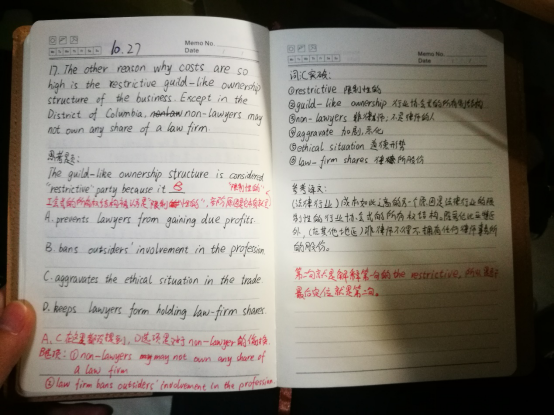 10.27
Memo No.
Date
17. The other reason why costs are so
high is the restrictive guild-like ownership
structure of the business. Except in the
District of Columbia, non-lawyers may
not own any share of a law firm.
思考题:
The guild-like ownership structure is considered
"restrictive" party because it B
"限制性的"
A. prevents lawyers from gaining due profits.
B. bans outsiders' involvement in the profession.
C. aggravates the ethical situation in the trade
D. keeps lawyers form holding law-firm shares.
A、C 在 D选项是 non-lawyer 的
B选项: ①non-lawyers may may not own any share of
a law firm
②law firm bans outsiders' involvement in the profession.
Memo No.
Date
词汇突破:
①restrictive 限制性的
②guild-like ownership 行业协会式的所有制结构
③non-lawyers 非律师,不是律师的人
④aggravate 加剧,恶化
⑤ethical situation 道德形势
⑥law-firm shares 律所股份
参考译文:
(法律行业)成本如此之高的另一个原因是法律行业的限
制性的行业协会式的所有权结构。除哥伦比亚特区
外,(在其他地区)非律师不得拥有任何律师事务所
的股份。
第二句就是解释第一句的 the restrictive,所以
最后定位就是第二句。